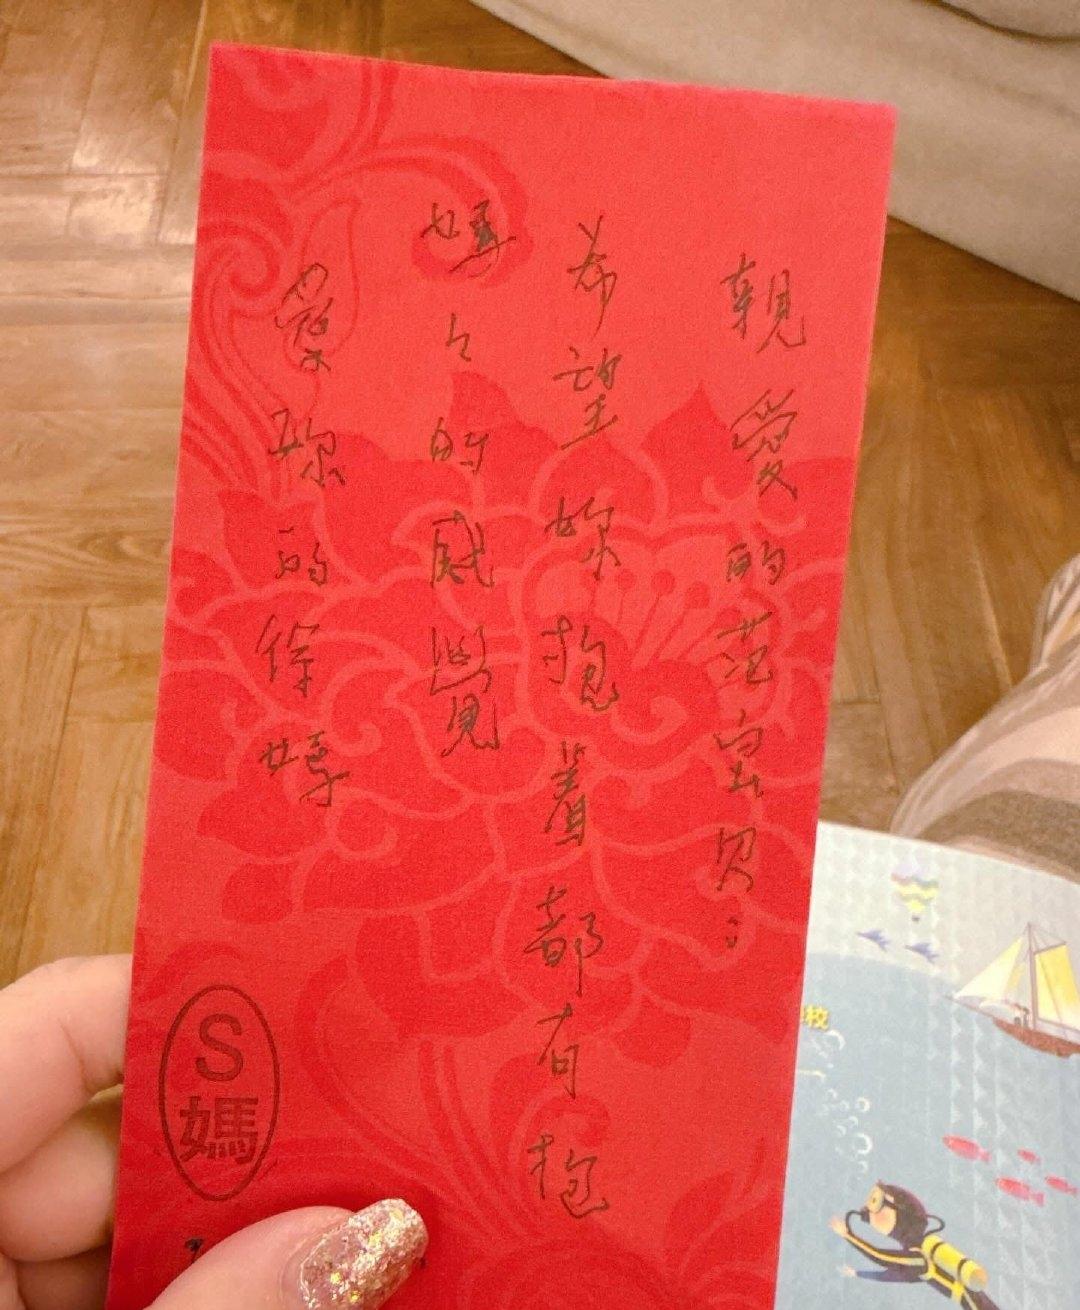 親愛的范寶贝：
希望妳抱着都有抱
媽々的感覺
愛妳的徐媽
S
媽
校